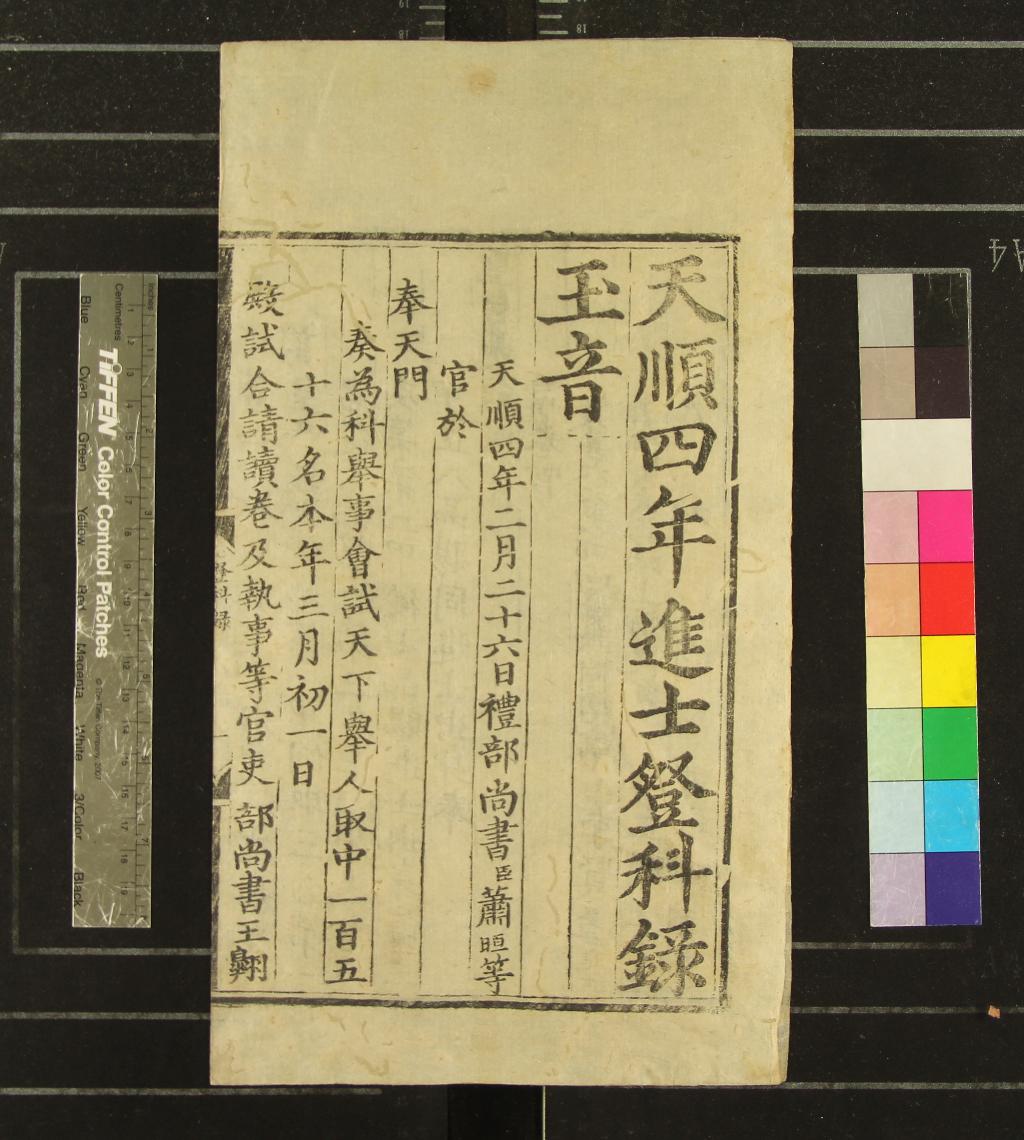 天順四年進士登科錄
玉音
天順四年二月二十六日禮部尚書臣蕭晅等
官於
奉天門
奏為科舉事會試天下舉人取中一百五
十六名本年三月初一日
殿試合請讀卷及執事等官吏部尚書王翺
登科錄
Inches
Centimetres
TIFFEN Color Control Patches
© The Tiffen Company, 2007
Blue
Cyan
Green
Yellow
Red
Magenta
White
3/Color
Black
A4